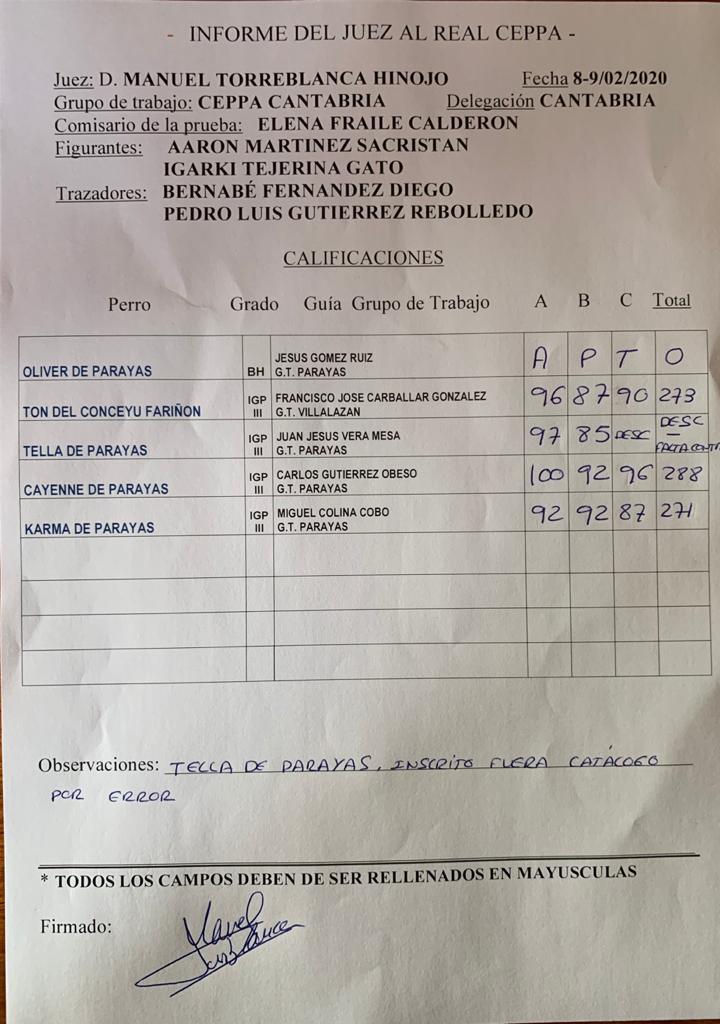 - INFORME DEL JUEZ AL REAL CEPPA -
Juez: D. MANUEL TORREBLANCA HINOJO Fecha 8-9/02/2020
Grupo de trabajo: CEPPA CANTABRIA Delegación CANTABRIA
Comisario de la prueba: ELENA FRAILE CALDERON
Figurantes: AARON MARTINEZ SACRISTAN
IGARKI TEJERINA GATO
Trazadores: BERNABÉ FERNANDEZ DIEGO
PEDRO LUIS GUTIERREZ REBOLLEDO
CALIFICACIONES
Perro Grado Guía Grupo de Trabajo A B C Total
JESUS GOMEZ RUIZ
OLIVER DE PARAYAS BH G.T. PARAYAS A P T O
IGP FRANCISCO JOSE CARBALLAR GONZALEZ
TON DEL CONCEYU FARIÑON III G.T. VILLALAZAN 96 87 90 273
IGP JUAN JESUS VERA MESA 97 85 DESC DESC
TELLA DE PARAYAS III G.T. PARAYAS FALTA CONTR
IGP CARLOS GUTIERREZ OBESO
CAYENNE DE PARAYAS III G.T. PARAYAS 100 92 96 288
IGP MIGUEL COLINA COBO
KARMA DE PARAYAS III G.T. PARAYAS 92 92 87 271
Observaciones: TELLA DE PARAYAS, INSCRITO FUERA CATÁLOGO
POR ERROR
* TODOS LOS CAMPOS DEBEN DE SER RELLENADOS EN MAYUSCULAS
Firmado: